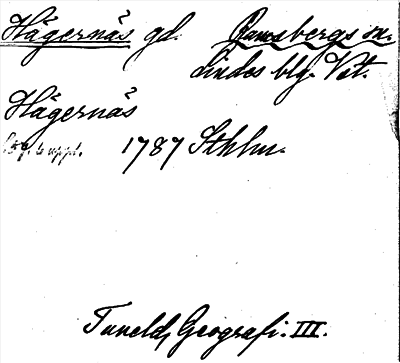 Hägernäs gd. Ramsbergs sn.
Lindes blg. Vst.
Hägernäs
1787 Sthlm.
Tuneld, Geografi. III.